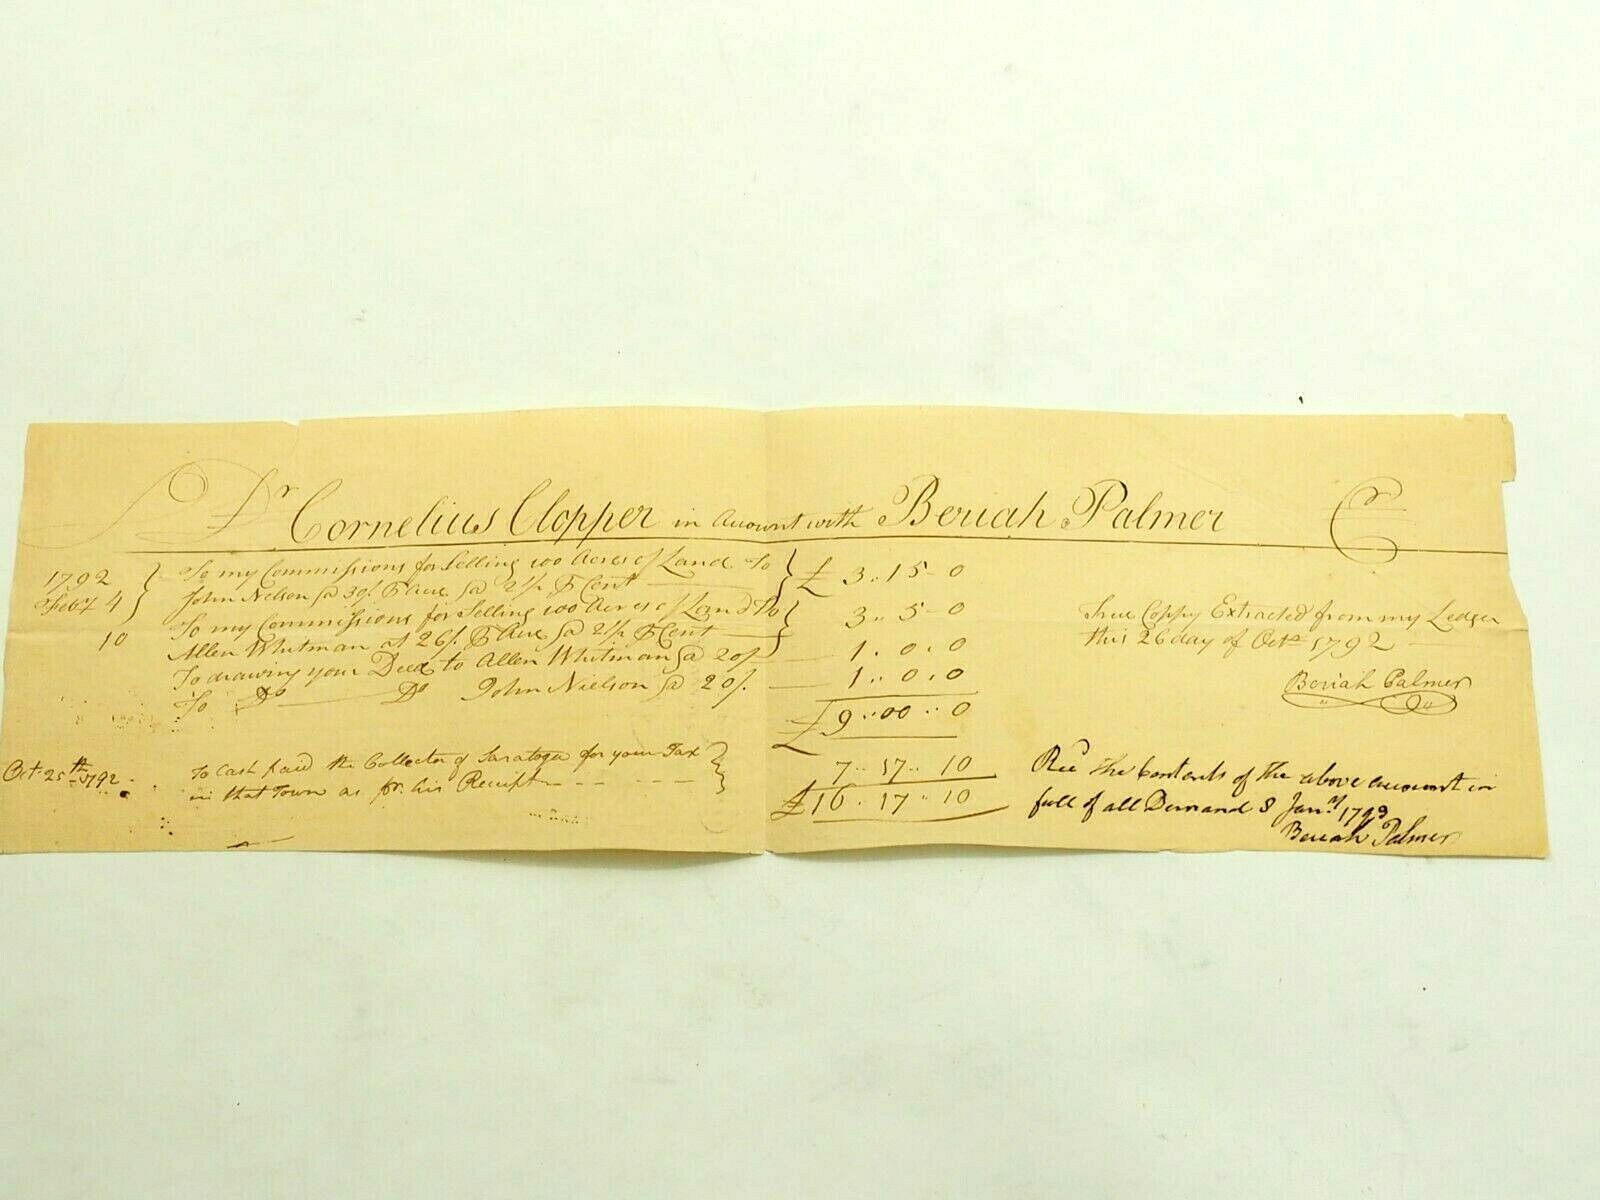 Dr Cornelius Clopper in Account with Beriah Palmer Cr
1792 To my Commissions for Selling 100 Acres of Land To
Feby 4 John Nelson @ 30/ P Acre @ 2½ P Cent £ 3 .. 15 - 0
10 To my Commissions for Selling 100 Acres of Land To
Allen Whitman at 26/ P Acre @ 2½ P Cent 3 .. 5 - 0
To drawing your Deed to Allen Whitman @ 20/ 1 .. 0 .. 0
To Do Do John Nielson @ 20/. 1 .. 0 .. 0
£ 9 .. 00 .. 0
Oct. 25th 1792. To Cash paid the Collector of Saratoga for your Tax
in that Town as pr. his Receipt 7 .. 17 .. 10
£ 16 .. 17 .. 10
True Coppy Extracted from my Ledger
this 26 day of Octr 1792
Beriah Palmer
Recd the Contents of the above account in
full of all Demand 8 Jany 1793
Beriah Palmer